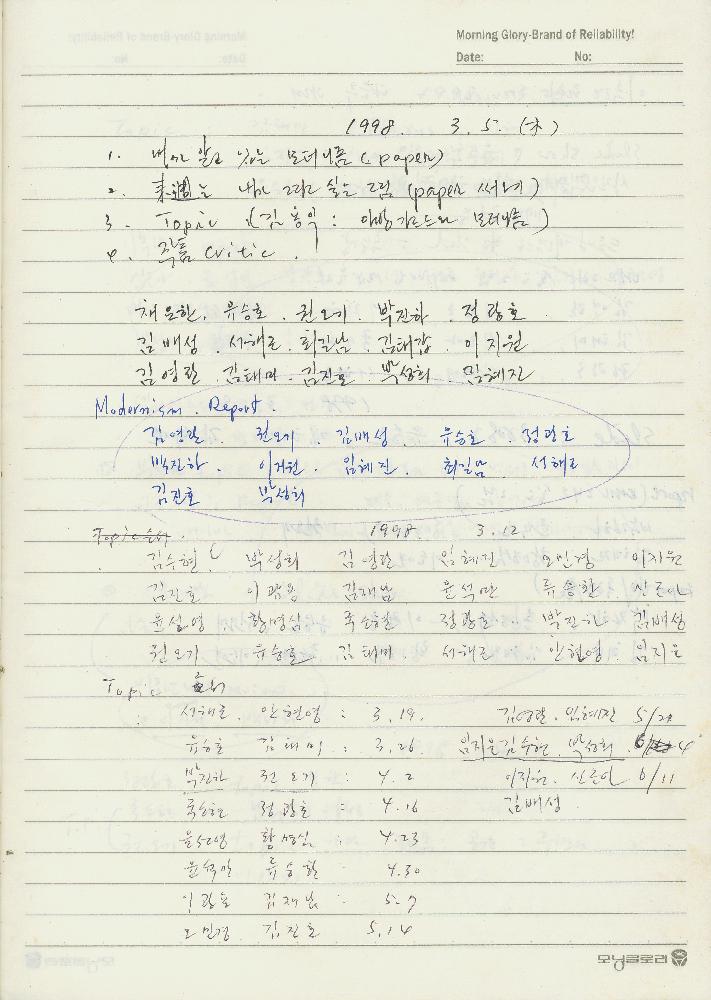 Morning Glory-Brand of Reliability!
Date: No:
1998. 3. 5. (木)
1. 내가 알고 있는 모더니즘 (paper)
2. 来週는 내가 그리고 싶은 그림 (paper 써내)
3. Topic (김용익 : 아방가르드와 모더니즘)
4. 작품 Critic.
채은한. 유승호. 권오기. 박진하. 정광호
김배성. 서해근. 최길남. 김태갑. 이지원
김영란. 김태미. 김진호. 박성희. 임혜진
Modernism. Report.
김영란. 권오기. 김배성 유승호. 정광호
박진하. 이지원. 임혜진. 최길남. 서해근
김진호 박성희
Topic 1998 3.12
김수현 박성희 김영란 임혜진 오민경 이지원
김진호 이광용 김해남 윤석만 류승환 신은아
윤성영 황명심 정광호. 박진하 김배성
권오기 유승호 김태미. 서해근 안현영. 임지은
Topic
서해근. 안현영 : 3.19. 김영란. 임혜진 5/28
유승호 김태미 : 3.26 임지은 김수현 박성희. 6/4
박진하 권오기 : 4.2 이지원. 신은아 6/11
정광호 : 4.16 김배성
윤성영 황명심 : 4.23
윤석만 류승환 4.30
김해남 : 5.7
오민경. 김진호 5.14
모닝글로리